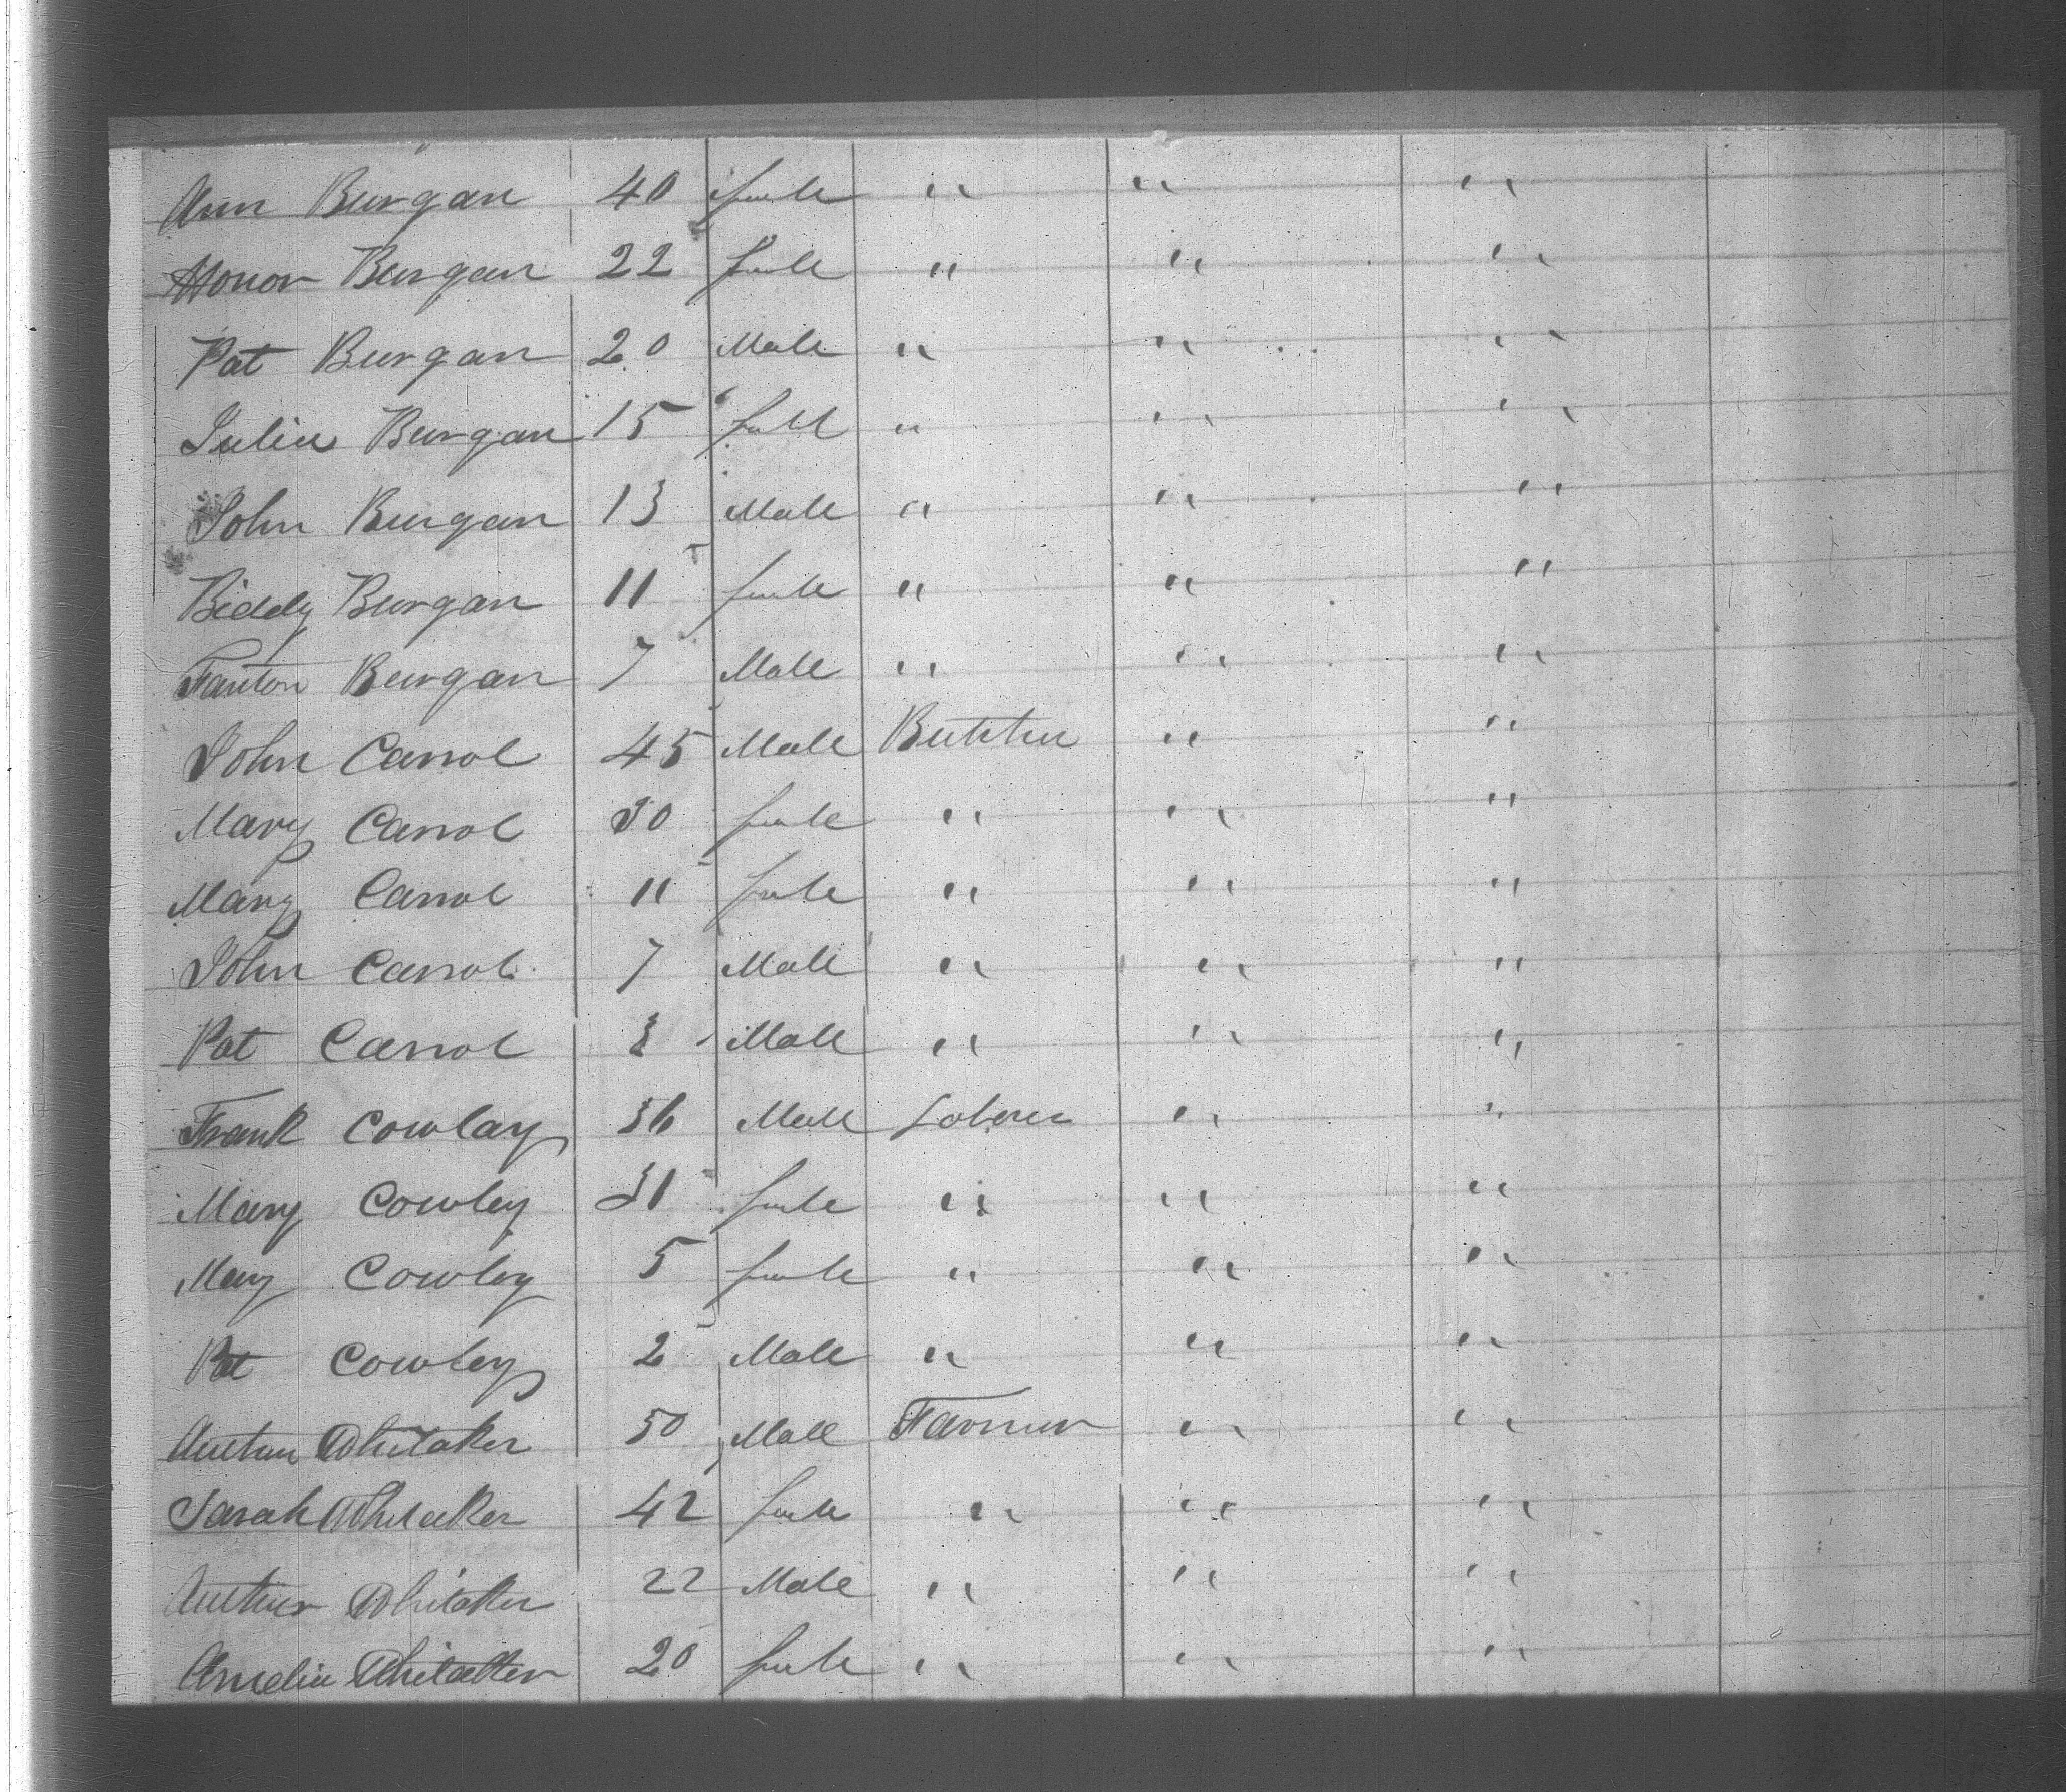 Ann Burgan 40 female " " "
Honor Burgan 22 female " " "
Pat Burgan 20 Male " " "
Julia Burgan 15 female " " "
John Burgan 13 Male " " "
Biddy Burgan 11 female " " "
Burgan 7 Male " " "
John Carrol 45 Male " "
Mary Carrol 30 female " " "
Mary Carrol 11 female " " "
John Carrol 7 Male " " "
Pat Carrol 3 Male " " "
Frank Cowlay 36 Male Laborer " "
Mary Cowley 31 female " " "
Mary Cowley 5 female " " "
Pat Cowley 2 Male " " "
Whitaker 50 Male Farmer " "
Sarah Whitaker 42 female " " "
Whitaker 22 Male " " "
Amelia Whitaker 20 female " " "